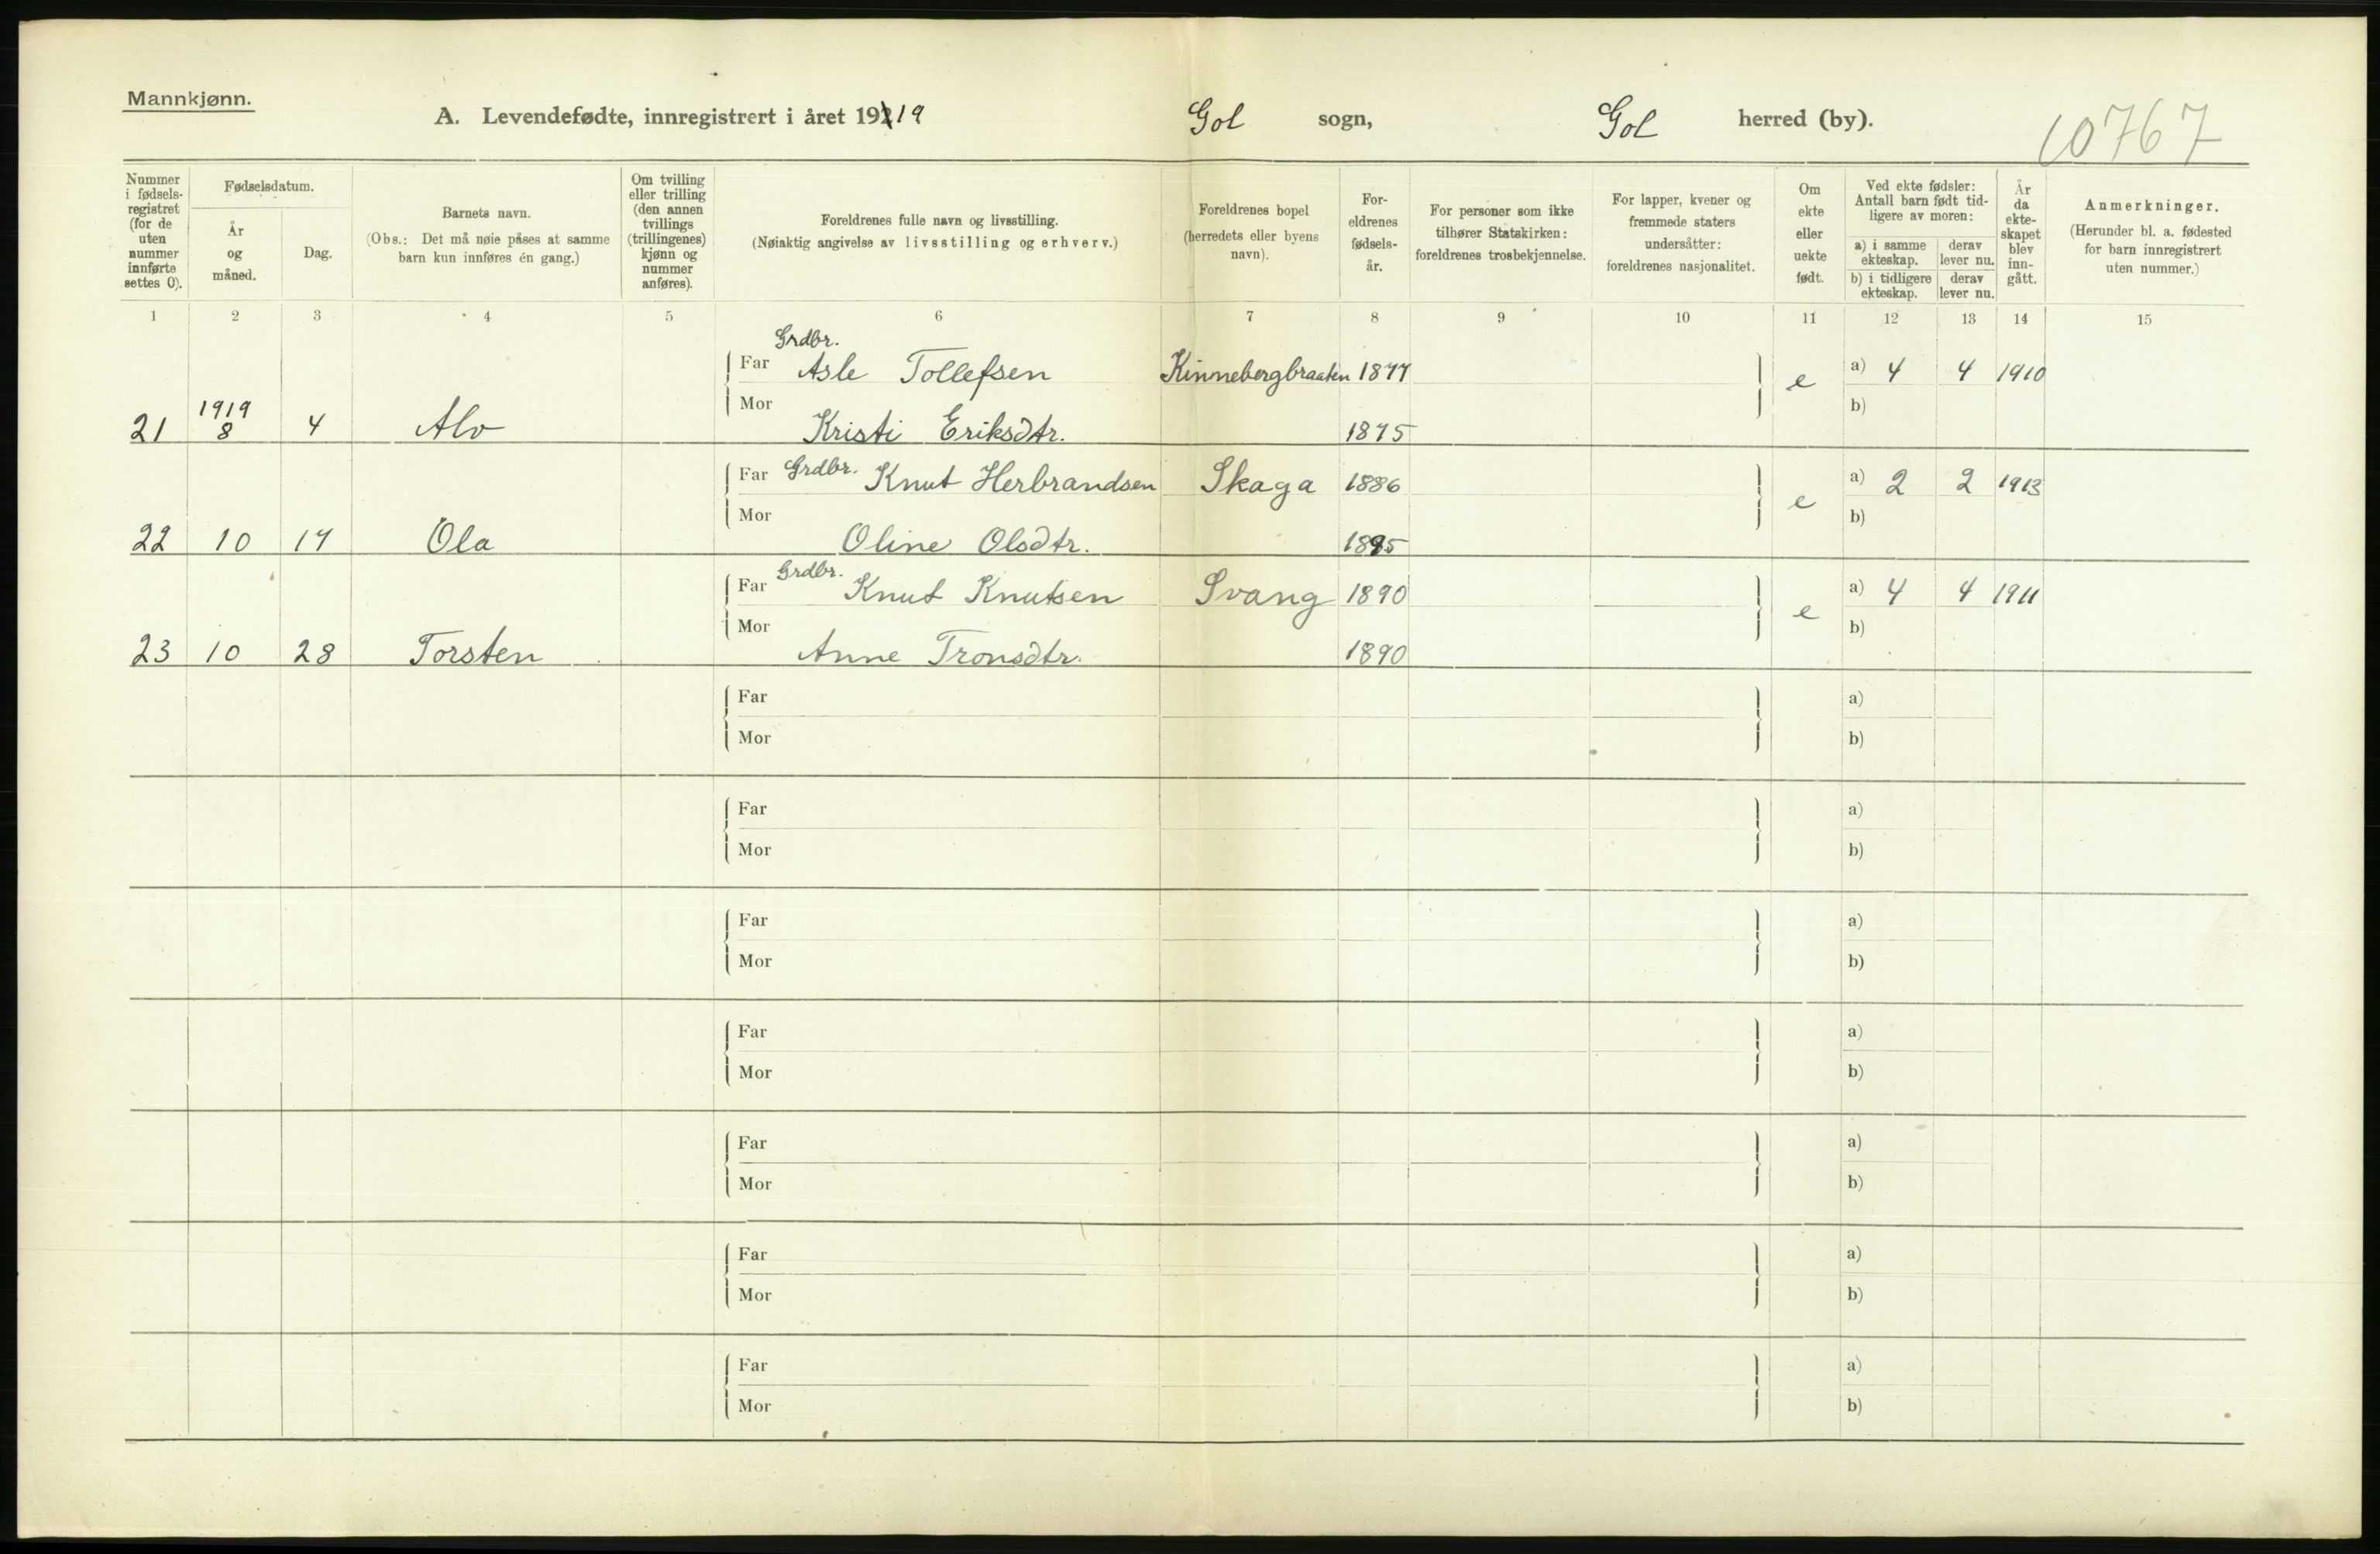 Mannkjønn.
A. Levendefødte, innregistrert i året 1919 Gol sogn, Gol herred (by). 10767
Nummer i fødsels-registret (for de uten nummer innførte settes 0).
Fødselsdatum.
År og måned.
Dag.
Barnets navn.
(Obs.: Det må nøie påses at samme barn kun innføres én gang.)
Om tvilling eller trilling (den annen tvillings (trillingenes) kjønn og nummer anføres).
Foreldrenes fulle navn og livsstilling.
(Nøiaktig angivelse av livsstilling og erhverv.)
Foreldrenes bopel (herredets eller byens navn).
For-eldrenes fødsels-år.
For personer som ikke tilhører Statskirken: foreldrenes trosbekjennelse.
For lapper, kvener og fremmede staters undersåtter: foreldrenes nasjonalitet.
Om ekte eller uekte født.
Ved ekte fødsler: Antall barn født tid-ligere av moren:
a) i samme ekteskap.
derav lever nu.
b) i tidligere ekteskap.
derav lever nu.
År da ekte-skapet blev inn-gått.
Anmerkninger.
(Herunder bl. a. fødested for barn innregistrert uten nummer.)
1 2 3 4 5 6 7 8 9 10 11 12 13 14 15
Grdbr.
Far Asle Tollefsen Kinnebergbraaten 1877 e a) 4 4 1910
Mor b)
1919
21 8 4 Alv Kristi Eriksdtr. 1875
Far Grdbr. Knut Herbrandsen Skaga 1886 e a) 2 2 1913
Mor b)
22 10 17 Ola Oline Olsdtr. 1895
Far Grdbr. Knut Knutsen Svang 1890 e a) 4 4 1911
Mor b)
23 10 28 Torsten Anne Tronsdtr. 1890
Far a)
Mor b)
Far a)
Mor b)
Far a)
Mor b)
Far a)
Mor b)
Far a)
Mor b)
Far a)
Mor b)
Far a)
Mor b)